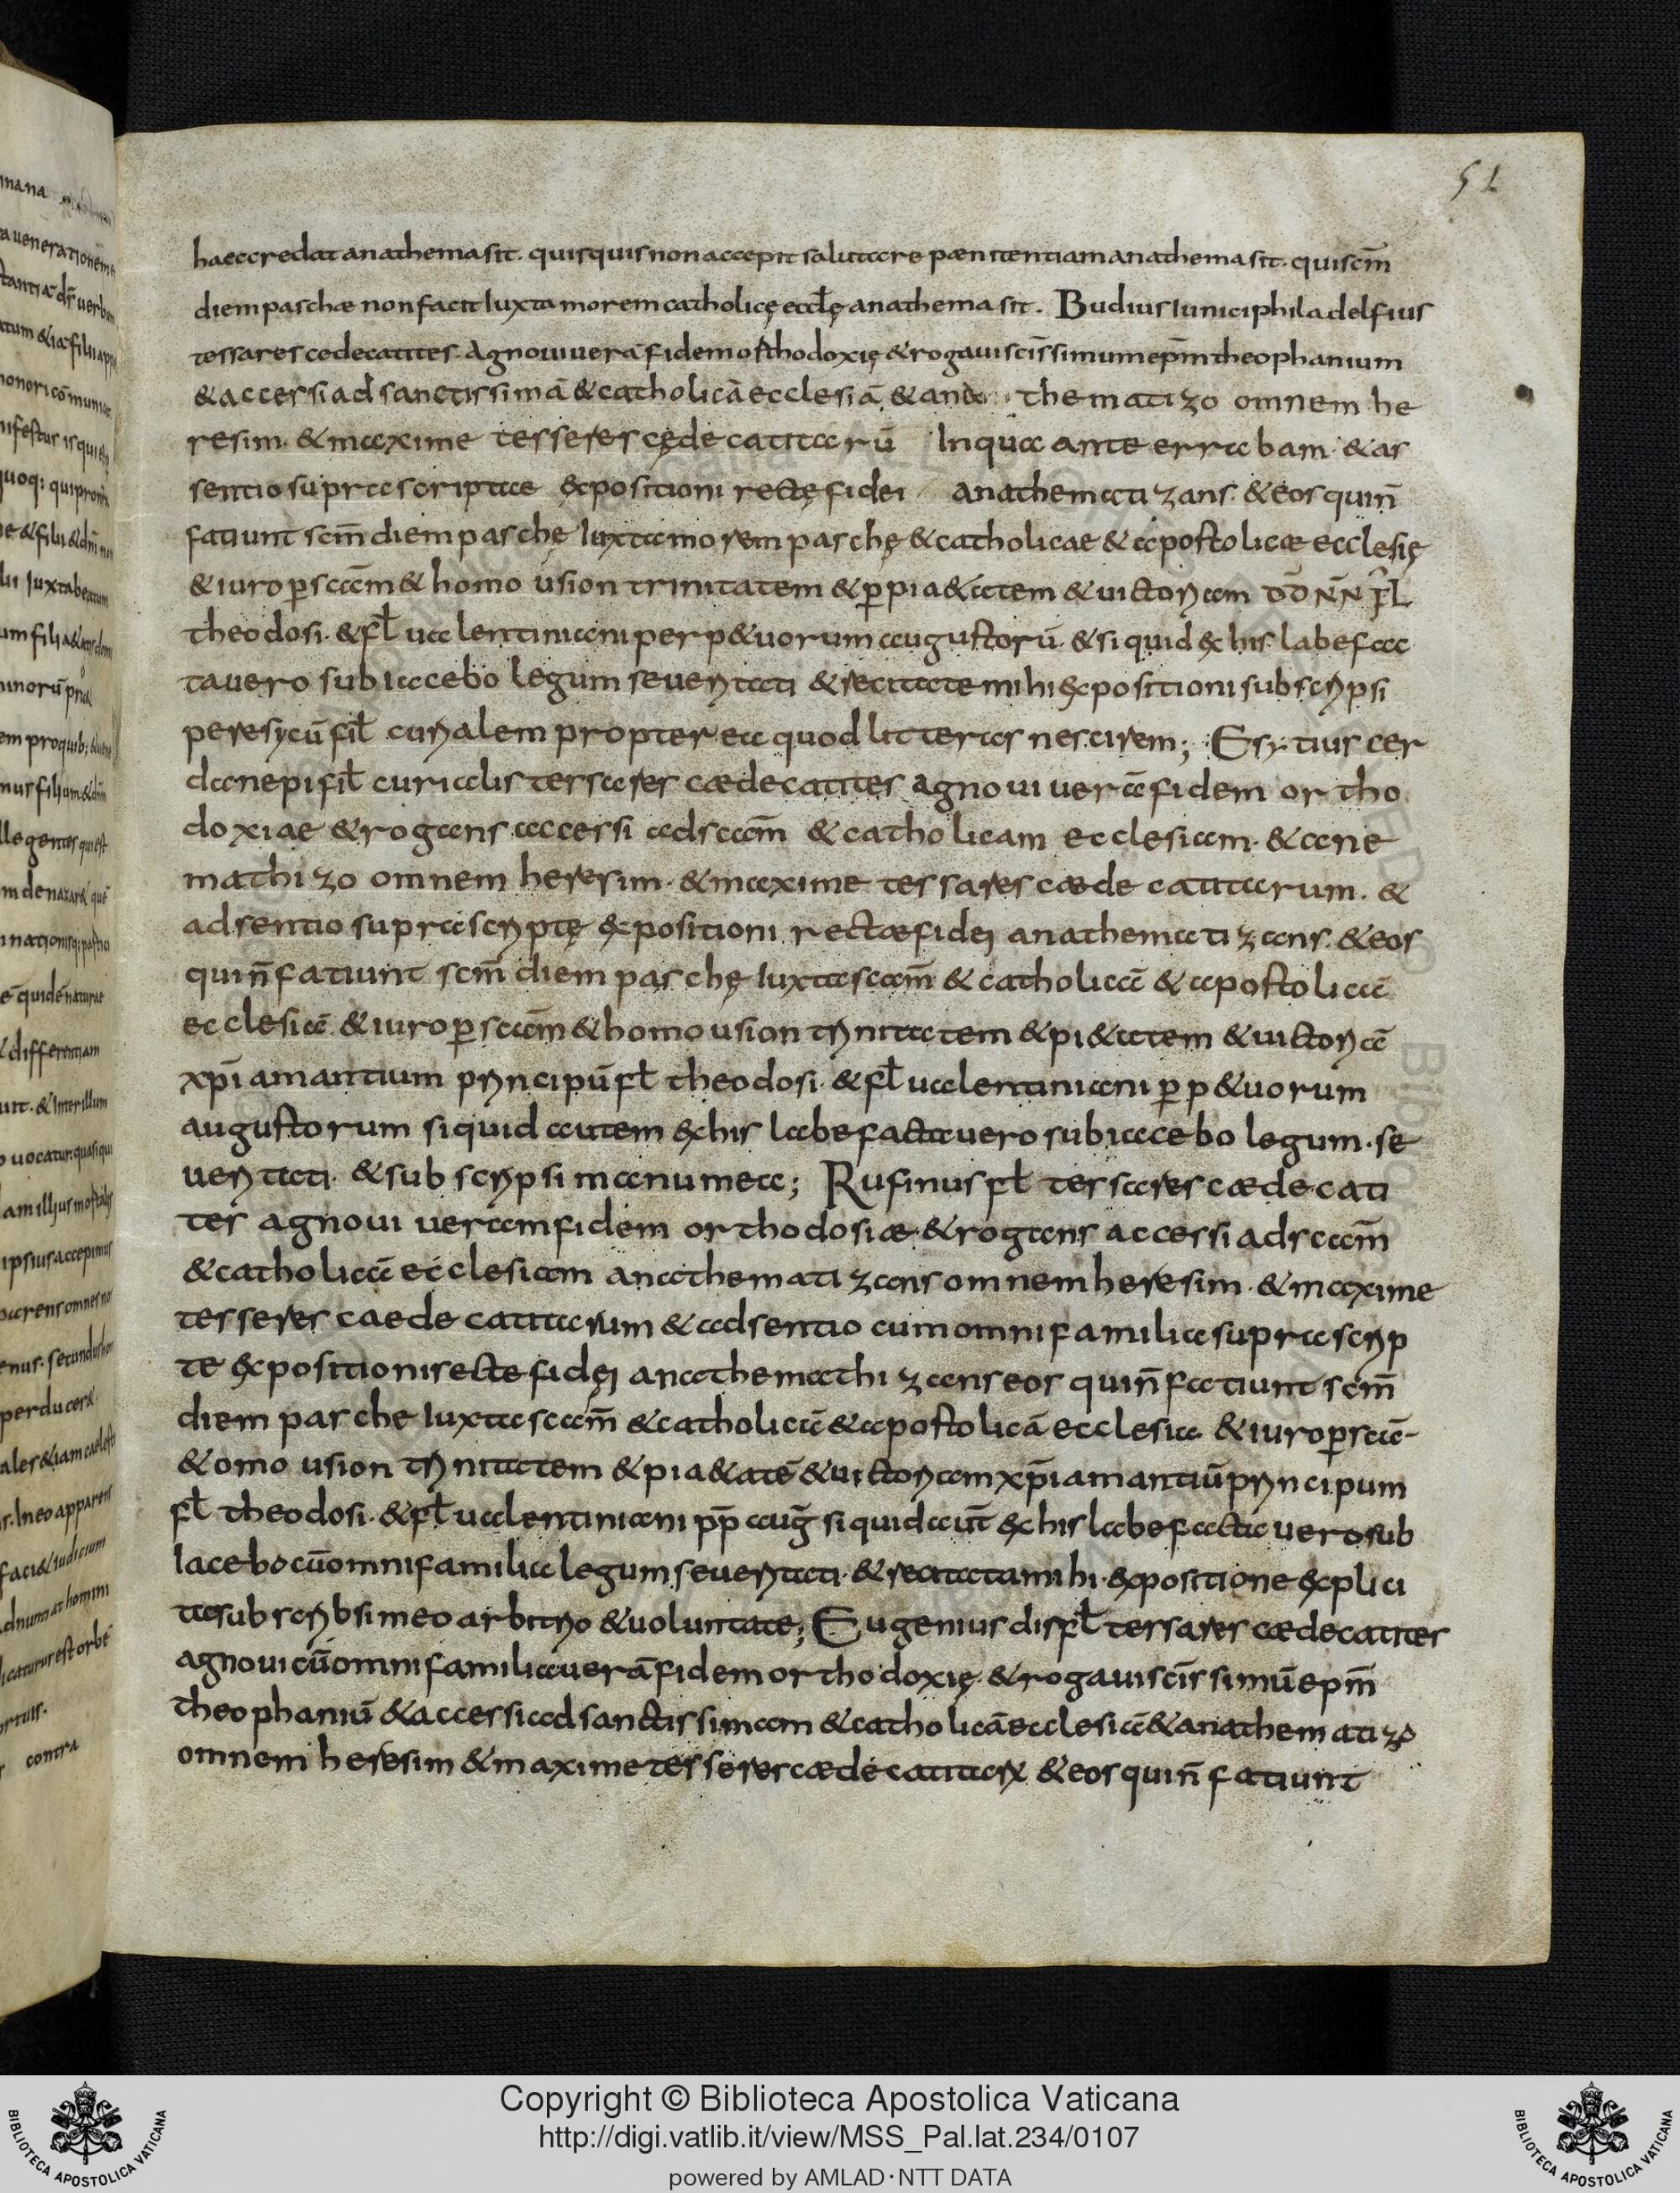 51
haec credat anathema sit. quisquis non accepit salutare pænitentiam anathema sit. qui scm̄
diem paschæ non facit Iuxta morem catholicę eccƚę anathema sit. Budius Iunici philadelfius
tessares cedecatites. Agnoui uerā fidem osthodoxię & rogaui scīssimum ep̄m theophanium
& accersi ad sanctissimā & catholicā ecclesiā & ana thematizo omnem he
resim. & maxime tesseres cędecatitarū In qua ante errabam. & as
sentio supra scriptae expositioni rectę fidei anathematizans. & eos qui n̄
fatiunt scm̄ diem paschę Iuxta morem paschę & catholicae & apostolicæ ecclesię
& iuro per scām & homo usion trinitatem & per pia&atem & uictoriam D̄D̄ N̄N̄ FL
theodosi. & fƚ ualentiniani perp&uorum augustorū. & si quid ex his labefac
tauero subiacebo legum seueritati & recitate mihi expositioni subscripsi
peresycū fiƚ curialem propter ea quod litteras nescirem; Esytius cer
danepi fiƚ curialis tersares cædecatites agnoui uerā fidem ortho
doxiae & rogans accersi ad scām & catholicam ecclesiam. & ane
mathizo omnem heresim. & maxime tessares cæde catitarum. &
adsentio supra scriptę expositioni rectæ fidei anathematizans. & eos
qui n̄ fatiunt scm̄ diem paschę Iuxta scām & catholicā & apostolicā
ecclesiā. & iuro per scām & homousion trinitatem & pi&atem & uictoriā
xp̄i amantium principū fƚ theodosi. & fƚ ualentiniani per p&uorum
augustorum si quid autem ex his labefactauero subiacebo legum. se
ueritati. & subscripsi manu mea; Rufinus fƚ tersares cædecati
tes agnoui ueram fidem orthodosiæ & rogans accessi ad scām
& catholicā ecclesiam anathematizans omnem heresim. & maxime
tesseres caede catitarum & adsentio cum omni familia supra scrip
te expositioni recte fidei anathemathizans eos qui n̄ fatiunt scm̄
diem pasche Iuxta scām & catholicā & apostolicā ecclesia & iuro per scā
& omo usion trinitatem & pia&atē & uictoriam xp̄i amantiū principum
fƚ theodosi. & fƚ ualentiniani pp̄ auḡ si quid aut̄ ex his labefactauero sub
Iacebo cū omni familia legum seueritati. & recitata mihi. expositione explici
ta subscribsi meo arbitrio & uoluntate; Eugenius dis fƚ tersares cædecatites
agnoui cū omni familia uerā fidem orthodoxię. & rogaui scīssimū ep̄m
theophaniū & accersi ad sanctissimam & catholicā ecclesiā & anathematizo
omnem heresim & maxime tesseres cædecatitarꝝ & eos qui n̄ fatiunt
Copyright © Biblioteca Apostolica Vaticana
http://digi.vatlib.it/view/MSS_Pal.lat.234/0107
powered by AMLAD·NTT DATA